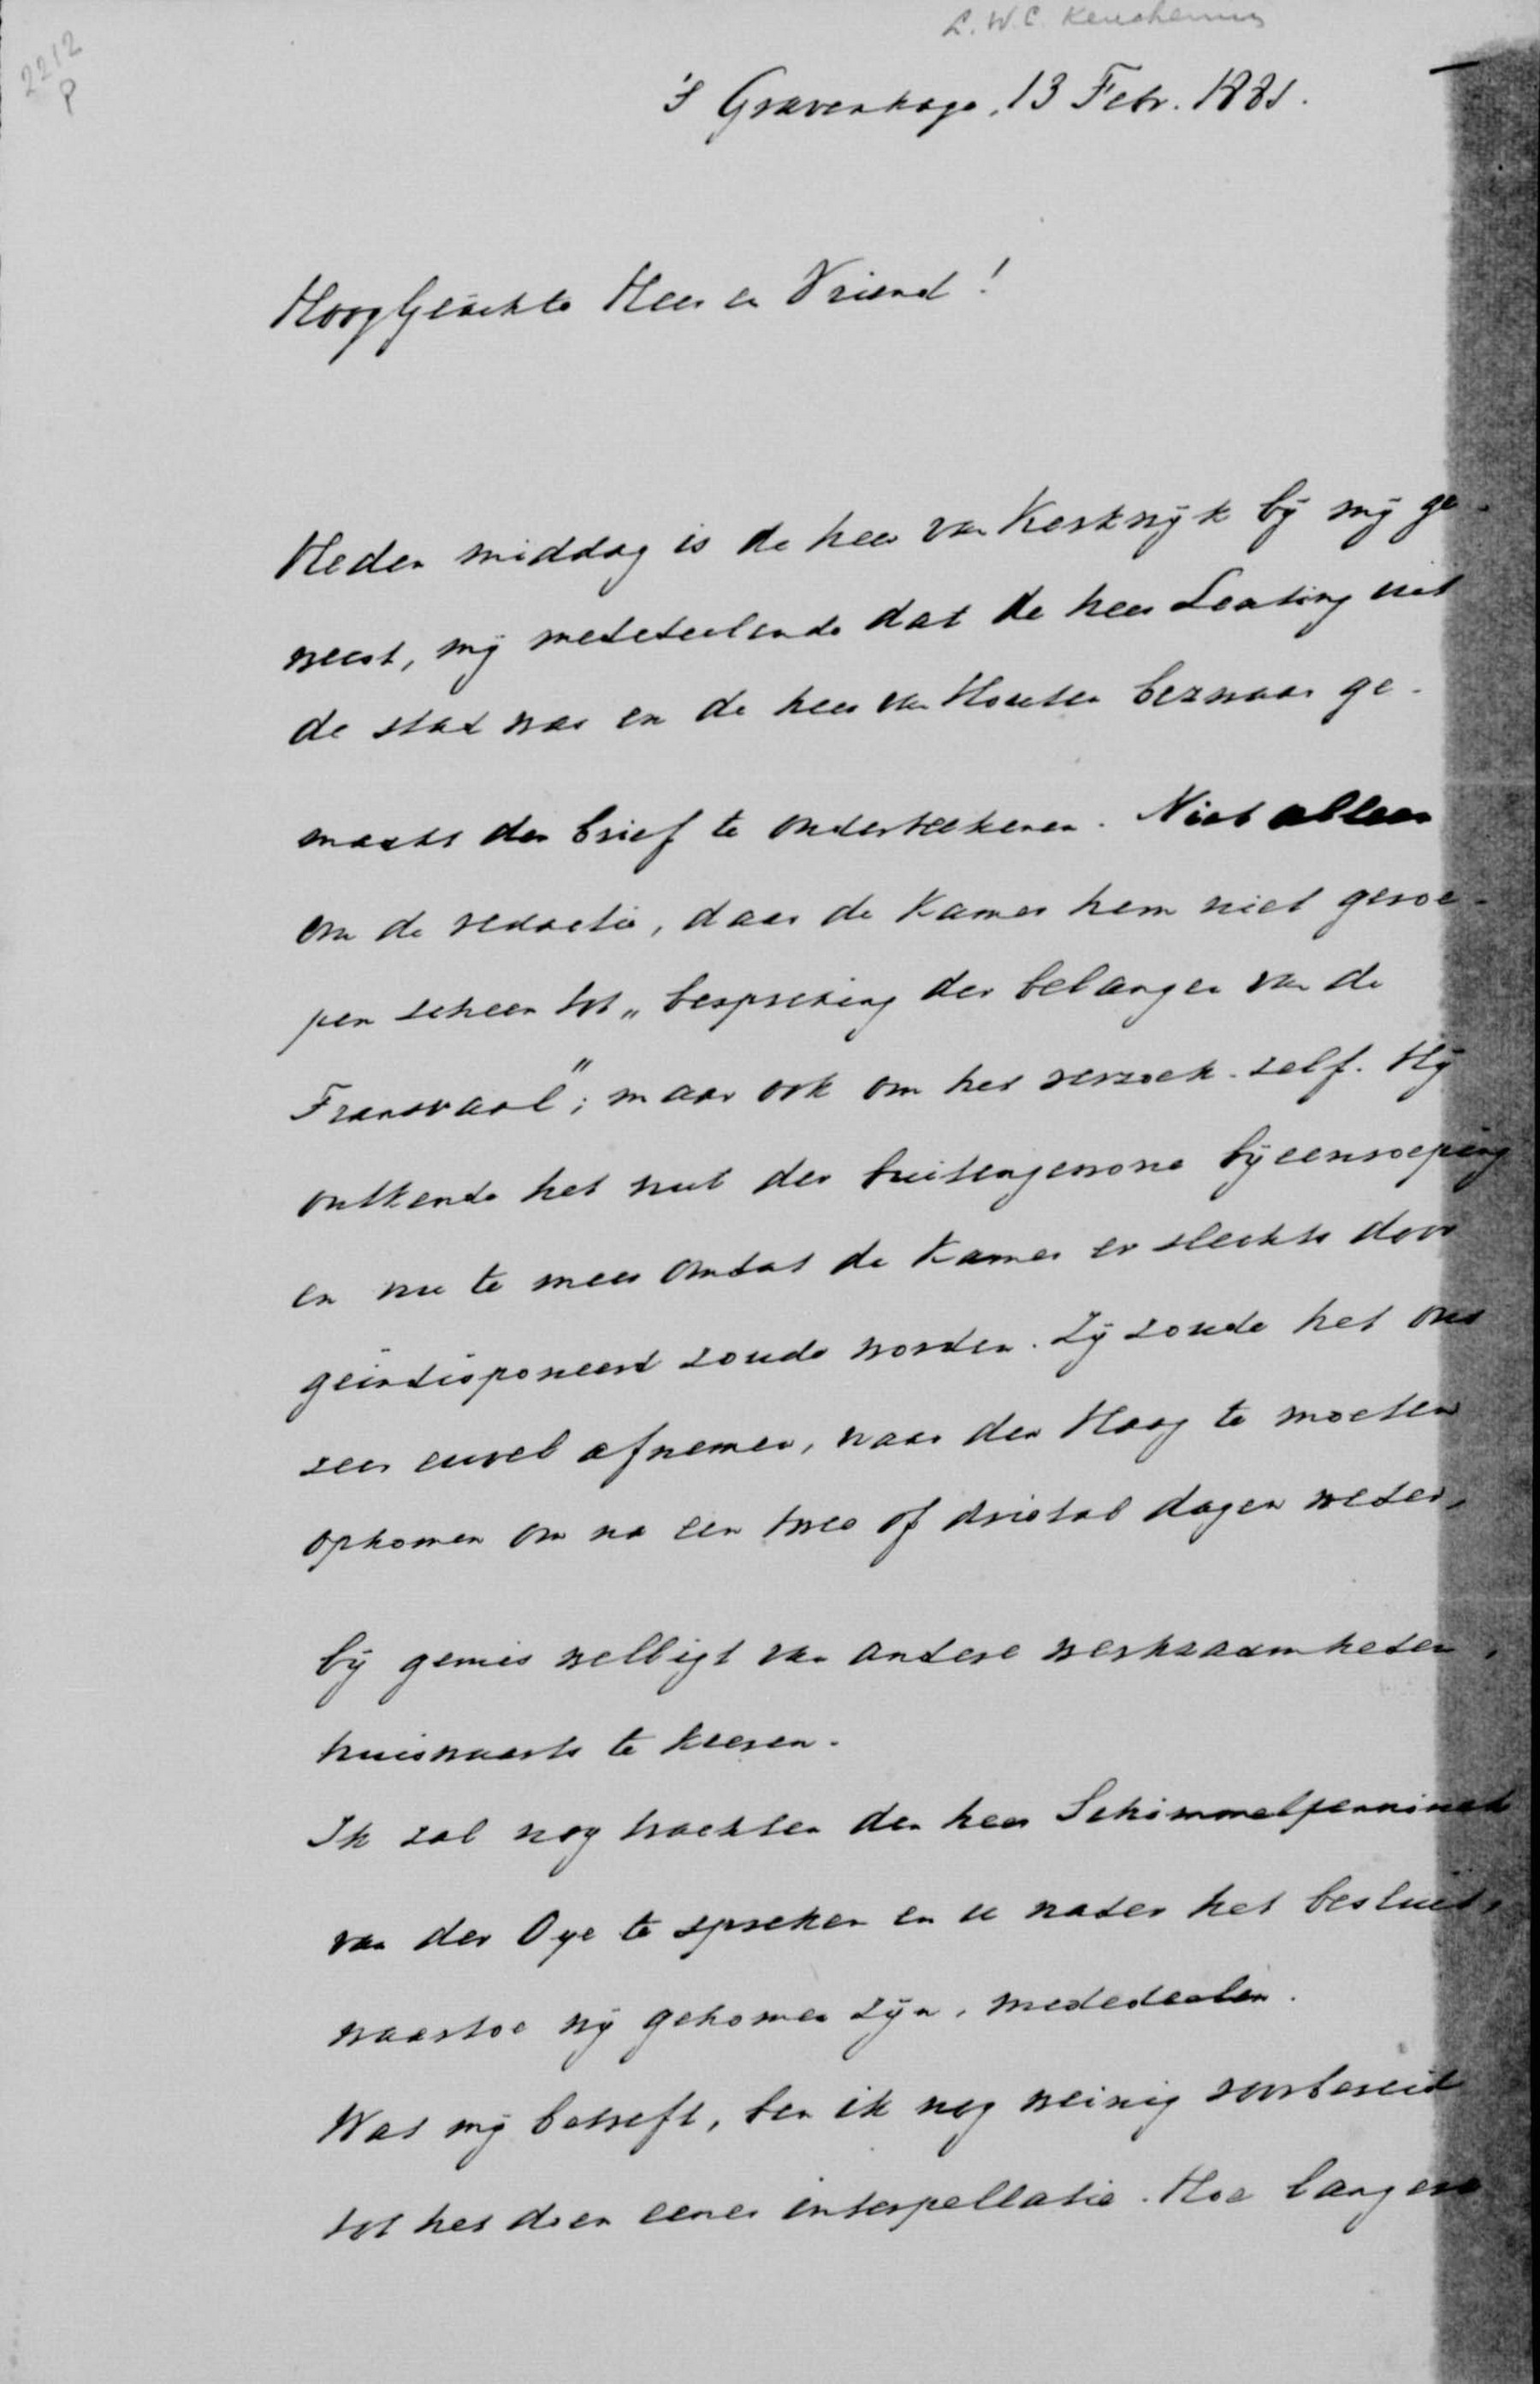 L.W.C. Keuchenius
2212
P
's Gravenhage, 13 Febr. 1881.
HoogGeachte Heer en Vriend!
Heden middag is de heer van Kerkwijk bij mij ge-
weest, mij mededeelende dat de heer Lenting uit
de stad was en de heer van Houten bezwaar ge-
maakt den brief te onderteekenen. Niet alleen
om de redactie, daar de Kamer hem niet geroe-
pen scheen tot „bespreking der belangen van de
Transvaal"; maar ook om het verzoek zelf. Hij
ontkende het nut der buitengewone bijeenroeping
en nu te meer omdat de Kamer er slechts door
geindisponeerd zoude worden. Zij zoude het ons
zeer euvel afnemen, naar den Haag te moeten
opkomen om na een twee of drietal dagen weder,
bij gemis welligt van andere werkzaamheden,
huiswaarts te keeren.
Ik zal nog trachten den heer Schimmelpenninck
van der Oye te spreken en u nader het besluit,
waartoe wij gekomen zijn, mededeelen.
Wat mij betreft, ben ik nog weinig voorbereid
tot het doen eener interpellatie. Hoe langer